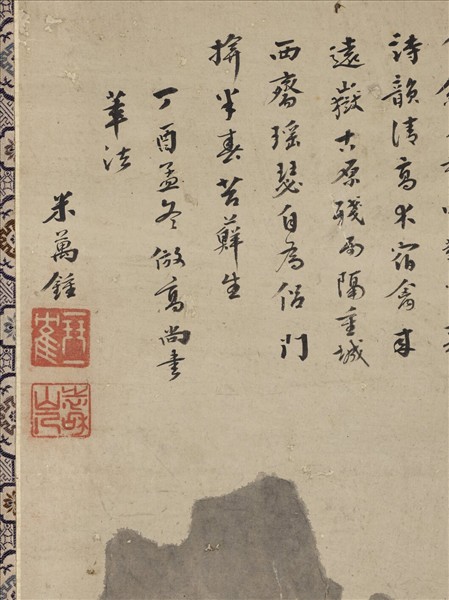 詩韻清高水宿禽来
遠嶽古原殘雨隔重城
西齋瑶瑟自為侣門
掩半春苔蘚生
丁酉孟冬倣高尚書
筆法
米萬鍾